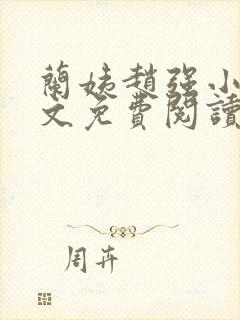 蘭姨趙强小
文免費閱讀
周卉